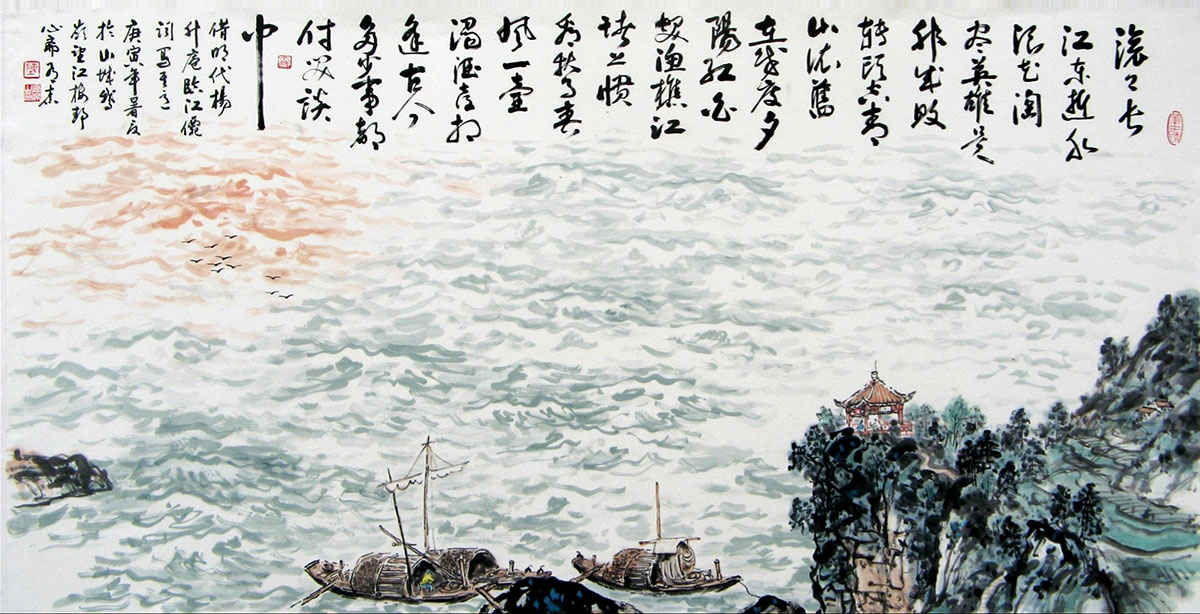 滚々长
江东逝水
浪花淘
尽英雄是
非成败
转头空青
山依舊
在幾度夕
陽红白
髪漁樵江
渚上惯
看秋月春
风一壶
濁酒喜相
逢古今
多少事都
付笑谈
中
借明代楊
升庵臨江僊
词写其意
庚寅年暑夏
於山城鹅
岭望江梅邨
心斋